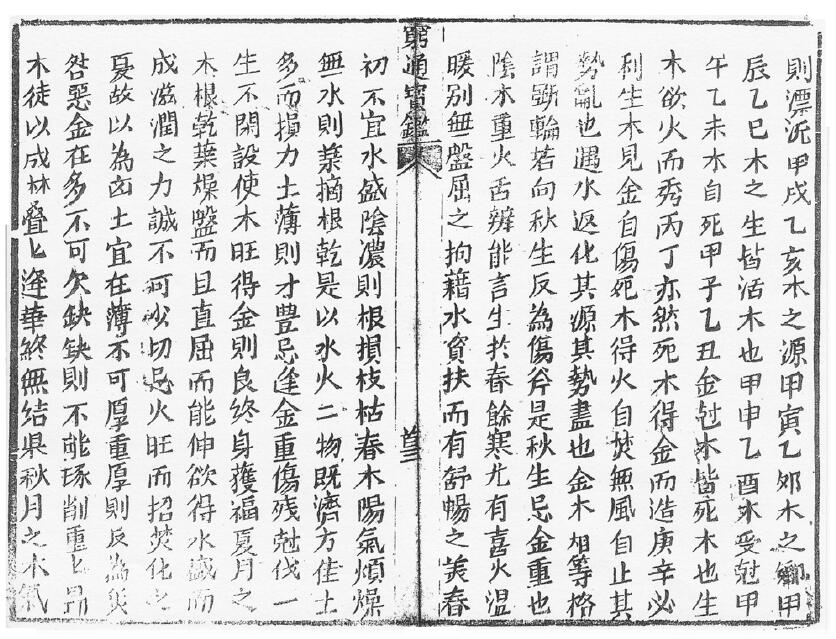 則漂泛甲戌乙亥木之源甲寅乙卯木之鄉甲
辰乙巳木之生皆活木也甲申乙酉木受尅甲
午乙未木自死甲子乙丑金尅木皆死木也生
木欲火而秀丙丁亦然死木得金而造庚辛必
利生木見金自傷死木得火自焚無風自止其
勢亂也遇水返化其源其勢盡也金木相等格
謂斵輪若向秋生反為傷斧是秋生忌金重也
陰木重火舌辨能言生扵春餘寒尤有喜火温
暖别無盤屈之拘藉水資扶而有舒暢之美春
窮通寶鑑
初不宜水盛陰濃則根損枝枯春木陽氣煩燥
無水則葉摘根乾是以水火二物既濟方佳土
多而損力土薄則才豊忌逢金重傷殘尅伐一
生不閑設使木旺得金則良終身獲福夏月之
木根乾葉燥盤而且直屈而能伸欲得水盛而
成滋潤之力誠不可少切忌火旺而招焚化之
憂故以為凶土宜在薄不可厚重厚則反為災
咎惡金在多不可欠缺缺則不能琢削重匕見
木徒以成林疊匕逢華終無結果秋月之木氣